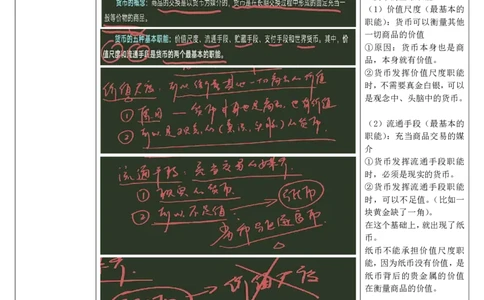 货币的概念：商品的交换是以货币为媒介的，货币是在长期交换过程中形成的固定充当一
般等价物的商品。
货币的五种基本职能：价值尺度、流通手段、贮藏手段、支付手段和世界货币。其中，价
值尺度和流通手段是货币的两个最基本的职能。
价值尺度：可以衡量其他一切商品的价值
① 原因 — 货币本身也是商品，也有价值
② 可以是观念的（
）货币。
流通手段：充当交易的媒介
① 现实的货币
② 可以不足值
纸币
价值尺度
（1）价值尺度（最基本的
职能）：货币可以衡量其他
一切商品的价值
①原因：货币本身也是商
品，本身就有价值。
②货币发挥价值尺度职能
时，不需要真金白银，可以
是观念中、头脑中的货币。
（2）流通手段（最基本的
职能）：充当商品交易的媒
介
①货币发挥流通手段职能
时，必须是现实的货币。
②货币发挥流通手段职能
时，可以不足值。（比如一
块黄金缺了一角）。
在这个基础上，就出现了纸
币。
纸币不能承担价值尺度职
能，因为纸币没有价值，是
纸币背后的贵金属的价值
在衡量商品的价值。